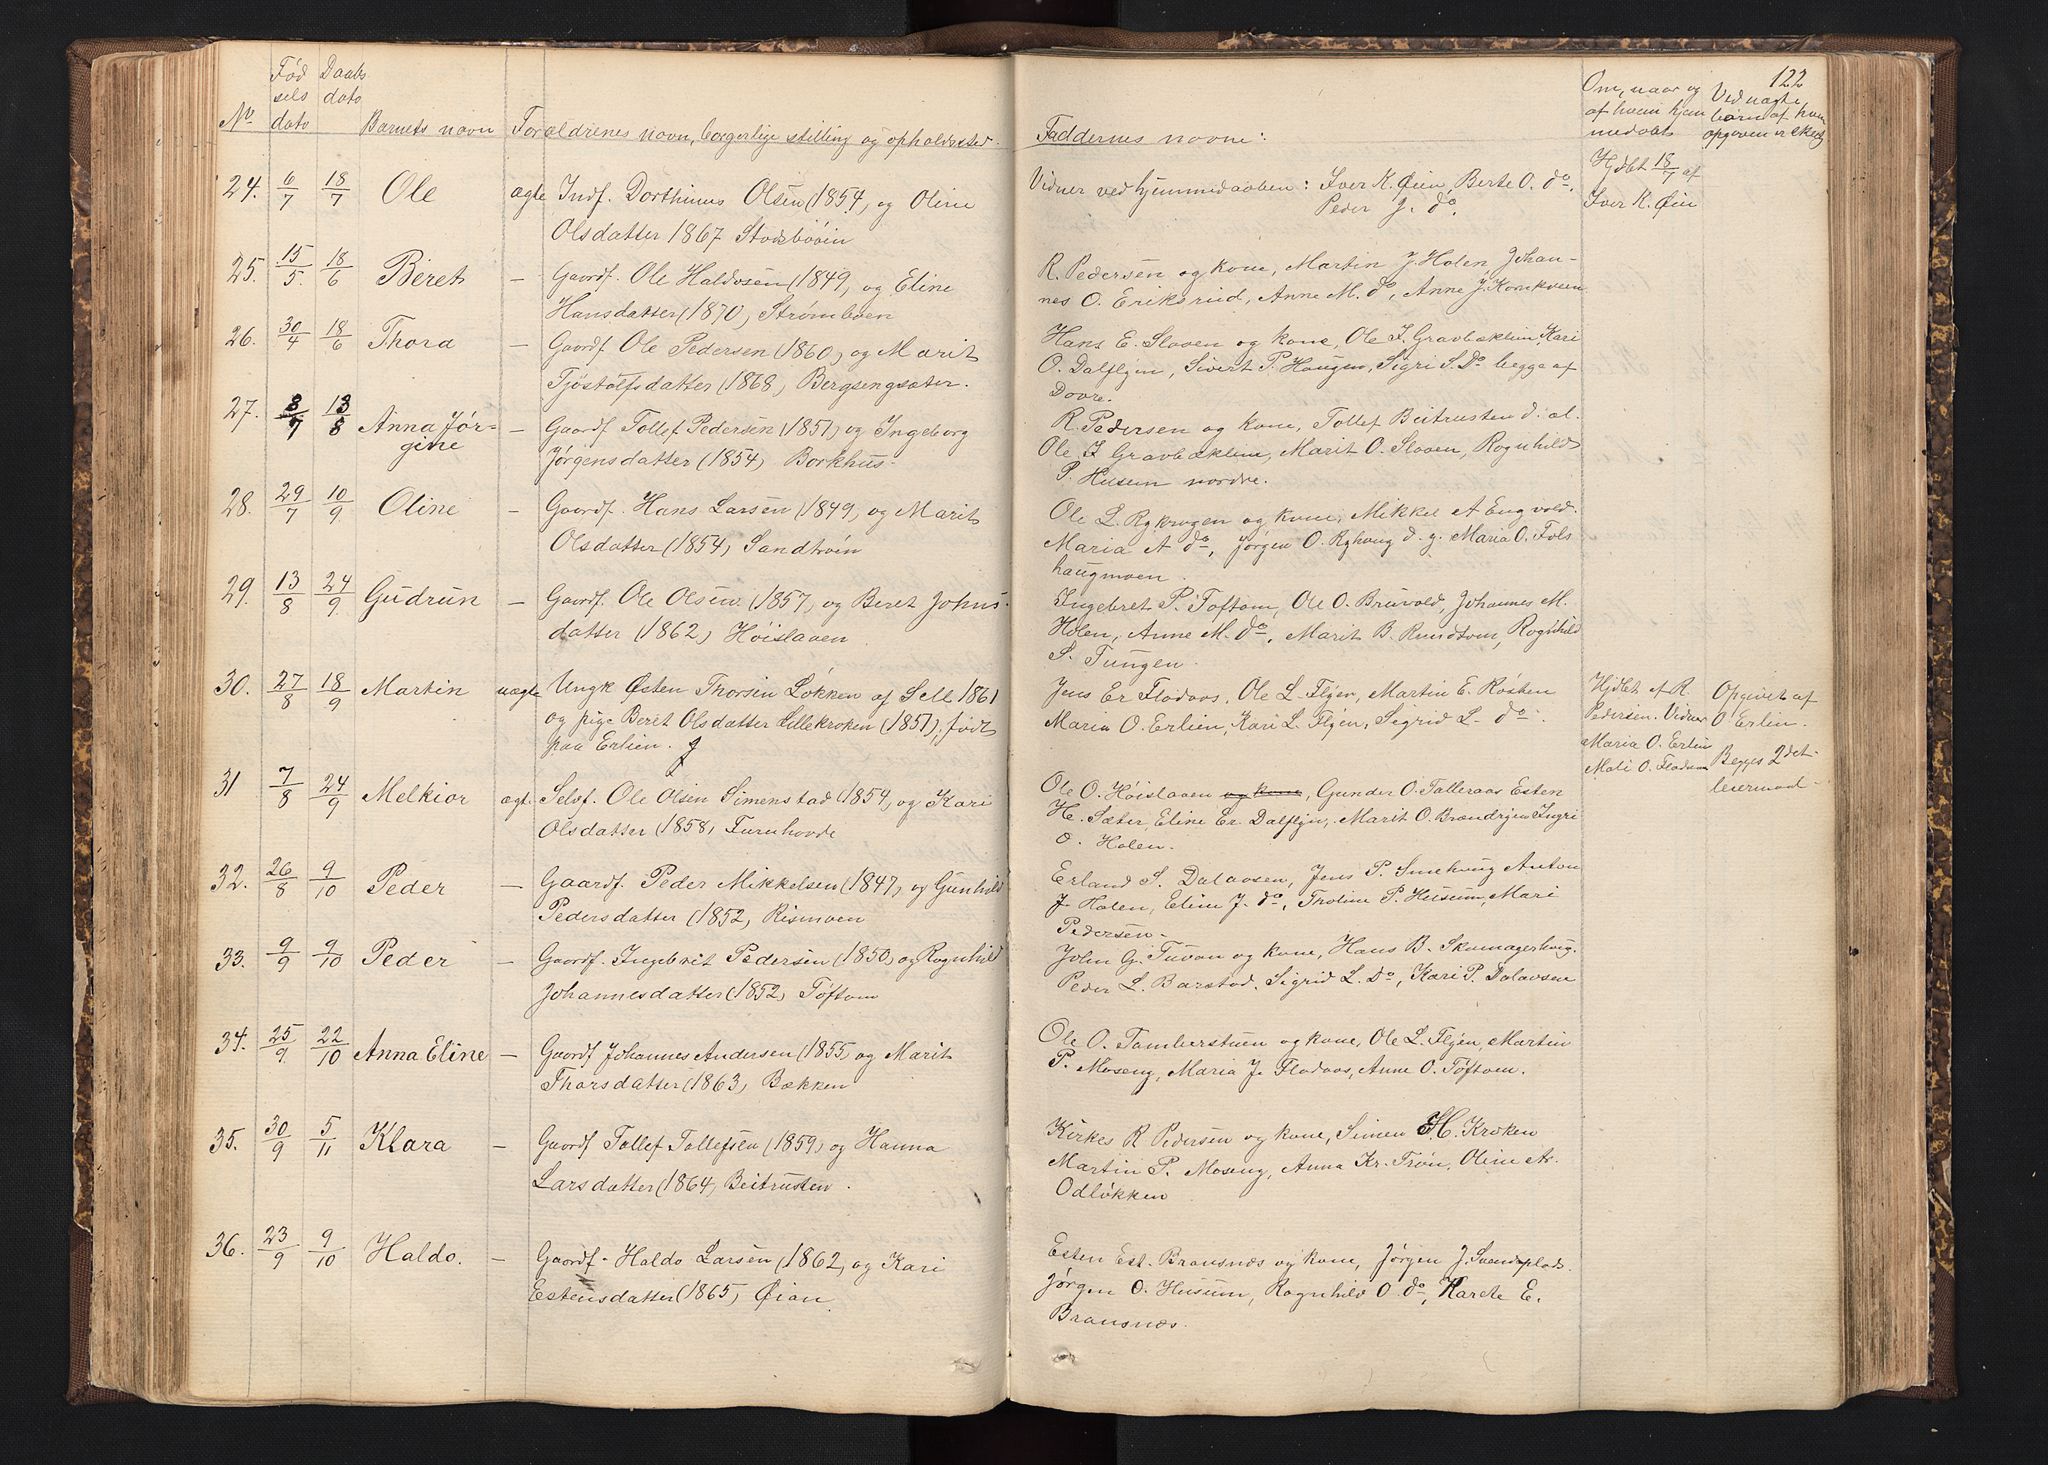 122
No
Fød
sels
dato
Daabs
dato
Barnets navn
Forældrenes navn, borgerlige stilling og opholdssted.
Faddernes navne:
Om, naar og
af hvem hjem
medøbt
Ved uægte
børn af hvem
opgiven
24. 6/7 18/7 Ole ægte Indf. Dorthinus Olsen (1854, og Oline
Olsdatter 1867 Stodsbøien
Vidner ved hjemmedaaben: Iver K. Øien, Berte O. do,
Peder J. do.
Hjdbt 18/7 af
Iver K. Øien
25. 15/5. 18/6 Beret — Gaardf. Ole Haldosen (1849, og Eline
Hansdatter (1870, Strømboen
R. Pedersen og kone, Martin J. Holen Johan-
nes O. Eriksrud, Anne M. do, Anne J. Kornkveen
26. 30/4 18/6 Thora — Gaardf. Ole Pedersen (1860, og Marit
Tjøstolfsdatter (1868, Bergsengsæter.
Hans E. Sloven og kone, Ole I. Gravbæklien, Kari
O. Dalflyen, Sivert P. Haugen, Sigri S. Do begge af
Dovre.
27. 3/7 13/8 Anna Jør-
gine
— Gaardf Tollef Pedersen (1851, og Ingeborg
Jørgensdatter (1854, Borkhus-
R. Pedersen og kone, Tollef Beitrusten d. æl.
Ole I Gravbæklien, Marit O. Sloven, Rognhild
P. Husum nordre.
28. 29/7 10/9 Oline — Gaardf. Hans Larsen (1849, og Marit
Olsdatter (1854, Sandtrøen
Ole L. Rykrogen og kone, Mikkel A Engvold.
Maria A do, Jørgen O. Ryhaug d. y. Maria O. Fols
haugmoen.
29. 13/8 24/9 Gudrun — Gaardf. Ole Olsen (1857, og Beret Johns-
datter (1862, Høislaaen
Ingebret P. Toftom, Ole O. Bruvold, Johannes M.
Holen, Anne M. do, Marit B. Rundtom, Rognhild
S. Tungen.
30. 27/8 18/9 Martin uægte Ungk Østen Thorsen Løkken af Sell 1861
og pige Beret Olsdatter Sellekroken (1851), født
paa Erlien.
Jens Er Flodaas, Ole L. Flyen, Martin E. Røsten
Maria O. Erlien, Kari L. Flyen, Sigrid L. do.
Hjdbt af R.
Pedersen. Vidner
Maria O. Erlien
Mali O. Flodaas
Opgivet af
O. Erlien.
Begges 2det
leiermaal
31 7/8 24/9 Melkior ægte Selvf. Ole Olsen Simenstad (1854, og Kari
Olsdatter (1858, Furuhovde
Ole O. Høislaaen og kone, Gunder O. Talleraas Esten
H. Sæter, Eline Er. Dalflyen, Marit O. Brændryen Ingri
O. Holen.
32. 26/8 9/10 Peder — Gaardf. Peder Mikkelsen (1847, og Gunhild
Pedersdatter (1852, Rismoen
Erland S. Dalaasen, Jens P. Smehaug Anton
J. Holen, Eline J. do, Tholine P. Husum, Mari
Pedersen-
33. 9/9 9/10 Peder — Gaardf. Ingebret Pedersen (1850, og Rognhild
Johannesdatter (1852, Toftom
John G. Tuvan og kone, Hans B. Skomagerhaug.
Peder L. Barstad, Sigrid L. Do, Kari P. Dalaasen
34. 25/9 22/10 Anna Eline — Gaardf Johannes Andersen (1855, og Marit
Thorsdatter (1863, Bækken
Ole O. Tomberstuen og kone, Ole L. Flyen, Martin
P. Moseng, Maria J. Flodaas, Anne O. Toftom.
35. 30/9 5/11 Klara — Gaardf Tollef Tollefsen (1859, og Hanna
Larsdatter (1864, Beitrusten.
Kirkes R Pedersen og kone, Simen H. Kroken
Martin P. Moseng, Anna Kr. Trøn, Oline Ar.
Odløkken
36. 23/9 9/10 Haldo. — Gaardf- Haldo Larsen (1862, og Kari
Estensdatter (1865, Øian
Esten Est. Bransnæs og kone, Jørgen J. Svendsplads.
Jørgen O. Husum, Rognhild O. do, Karete E.
Bransnæs.